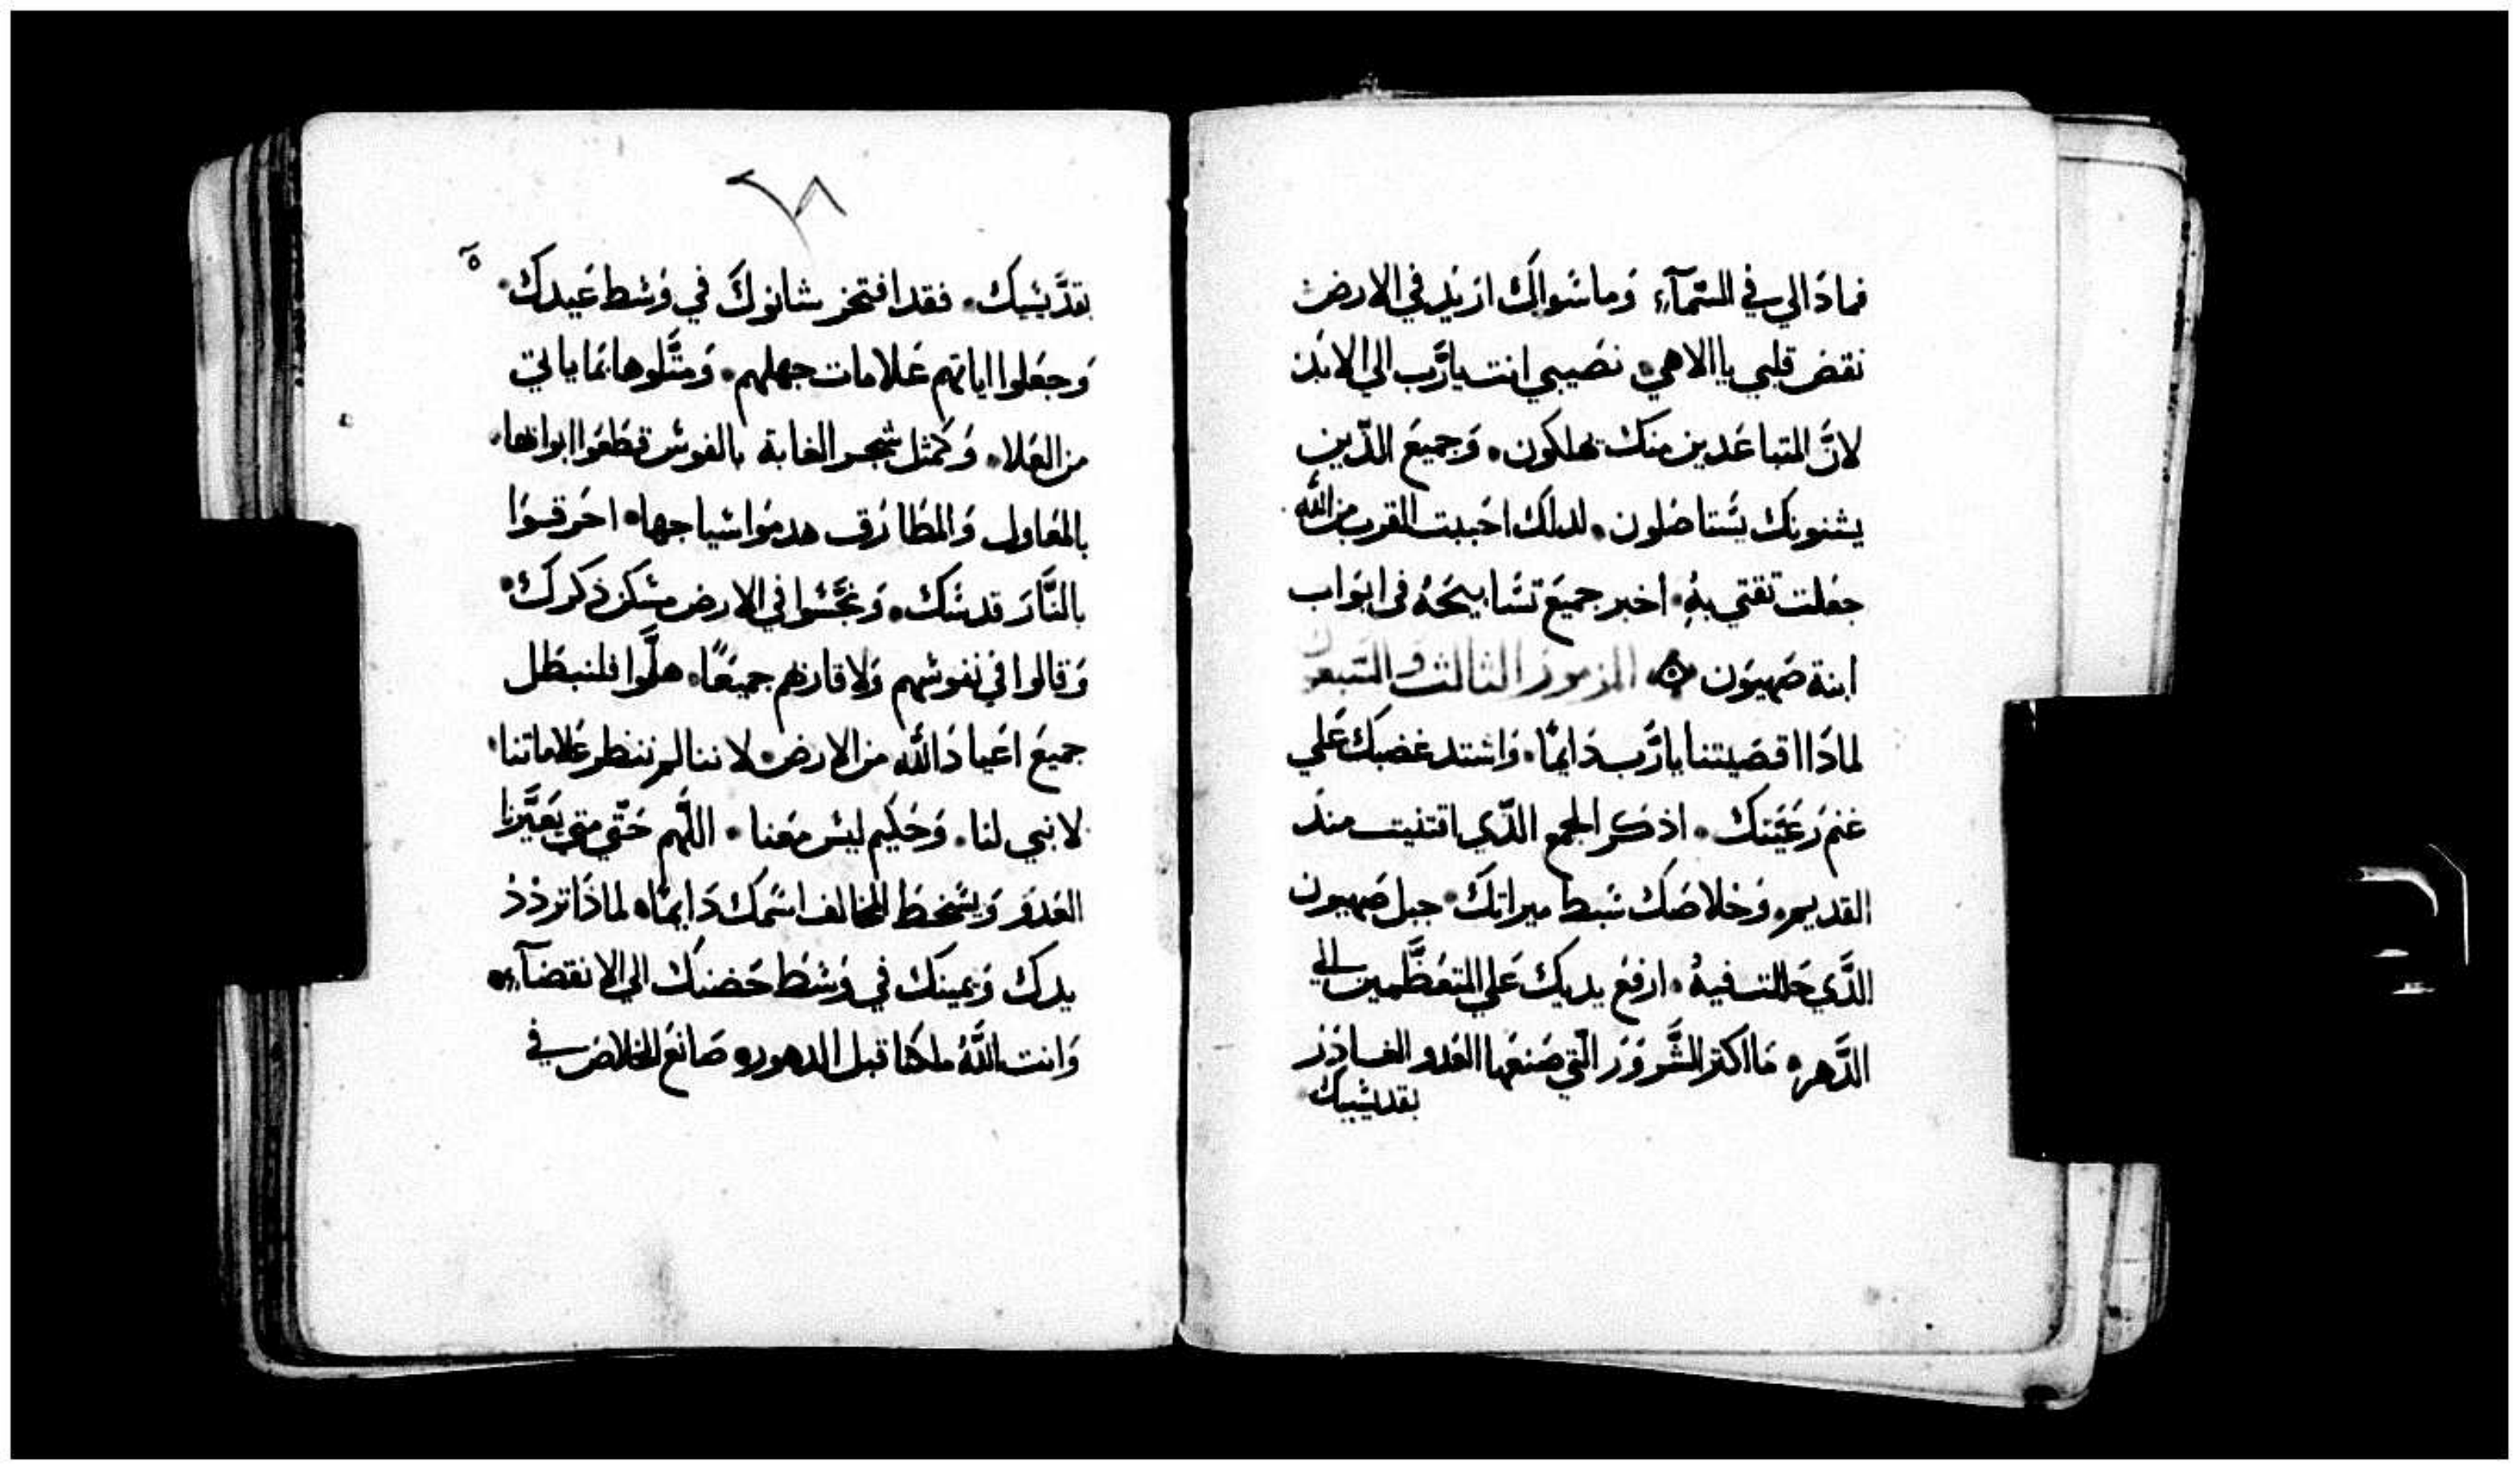 فماذا لي في السَّمآءِ وَما سَواك اريد في الارض
نقض قلبي يا الاهي نصَيبي انت يا رَّب الي الابَد
لانَّ المتباعَدين منك يهلكون وَجميعَ الذّين
يشنونك يسَتاصَلون لدلك احَببت القرب من الله
جعَلت تقتي بهِ اخبر جميعَ تسَابيحَهُ في ابوَاب
ابنة صَهيَون المزمور الثالث والسَبعون
لماذَا اقصَيتنا يا رَّب دَايماً وَاشتد غضبك عَلي
غنم رَعَيَتك اذكر الجمع الذّي اقتنيت منذ
القديم وَخلاصَك سَبط ميراتك جبل صَهيون
الذَّي حَللت فيهُ ارفعَ يديك عَلي المتعَظَّمين الي
الدَّهر مَا اكتر الشَّروَرَ الّتي صَنعَها العَدو الغادَر
بقديسَيك
٦٨
بقدَّيسَيك فقد افتخر شانوكَ في وَسَط عَيدك
وَجعَلوا اياتهم عَلامات جهلهم وَمتَّلوها بمَا ياتي
من العَلا وَكمَثل شجر الغابة بالفوسَ قطَعَوا ابوابها
بالمعَاول وَالمطَارَق هدموَا سَياجها احَرقوَا
بالنَّارَ قدسَك وَنجَّسَوا في الارض مسَكن ذكرك
وَقالوا في نفوسَهم وَلاقارَبهم جميعَاً هلَّموا فلنبطَل
جميعَ اعَياد الله من الارض لاننا لم ننظر عَلاماتنا
لا نبي لنا وَحَكيم ليسَ معَنا اللَّهم حَتّي متي يعَيَّرنا
العَدوَ وَيسَخطَ المخالف اسَمك دَايمَاً لماذَا تردَدَ
يدك وَيمينك في وَسَطَ حَضنك الي الانقضَآء
وَانت اللَّهُ ملكنَا قبل الدهور صَانعَ الخلاص في